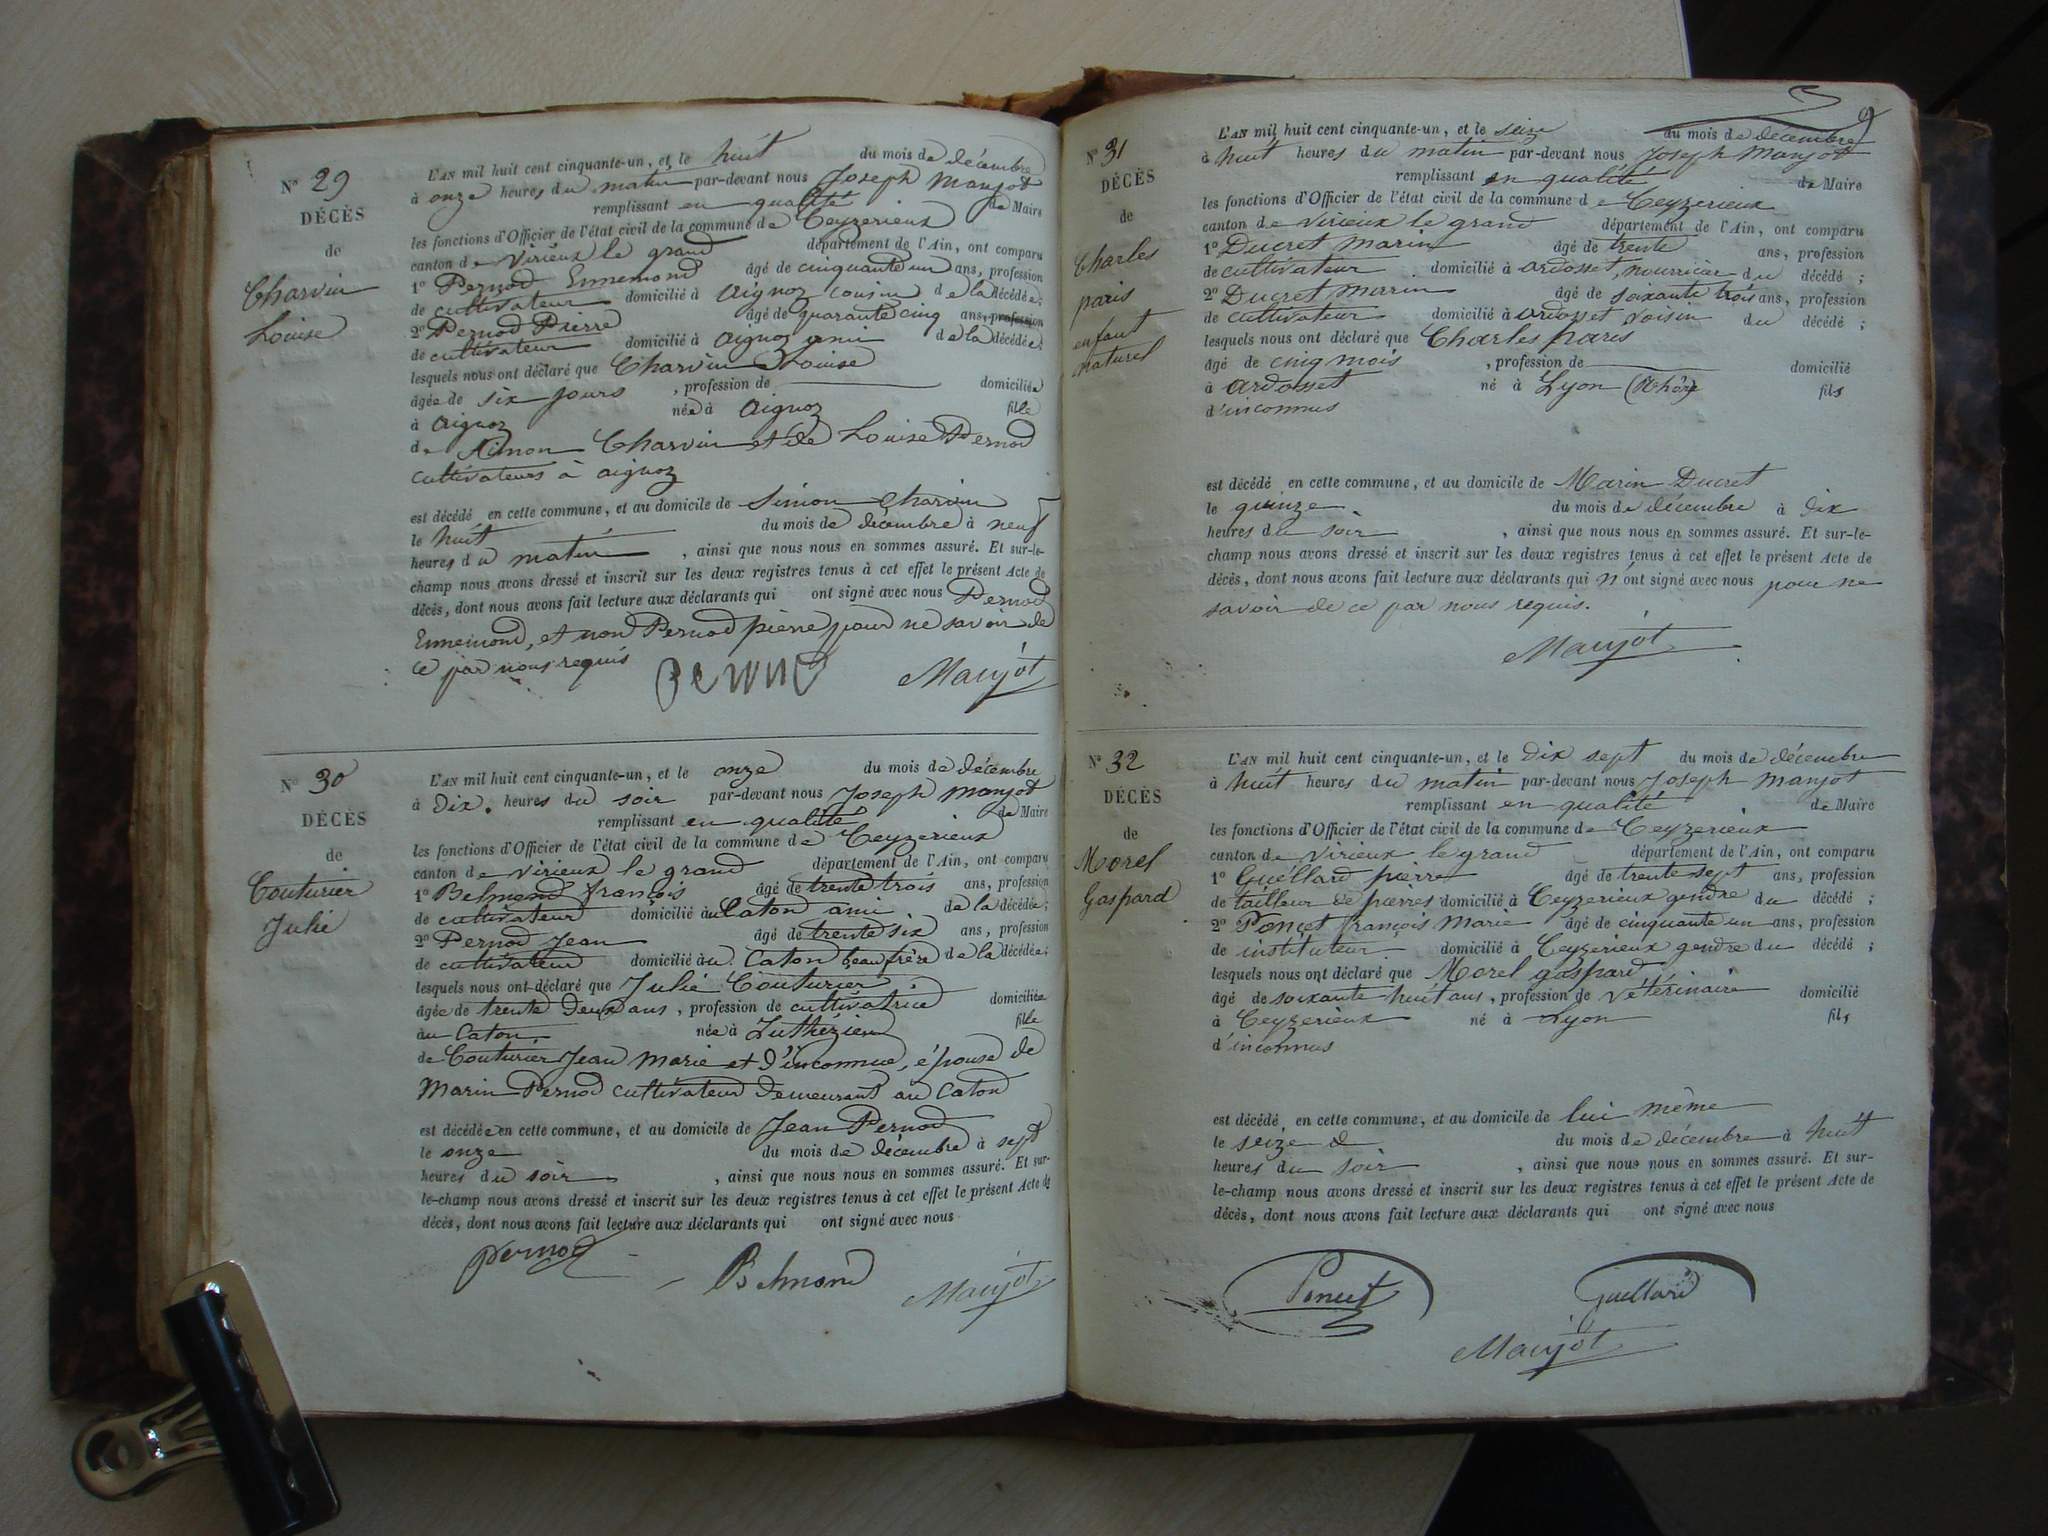 N° 29
DÉCÈS
de
Charvin
Louise
L'AN mil huit cent cinquante-un, et le huit du mois de décembre
à onze heures du matin par-devant nous Joseph Manjot
remplissant en qualité de Maire
les fonctions d'Officier de l'état civil de la commune de Ceyzerieux
canton de Virieux le grand département de l'Ain, ont comparu
1° Pernod Ennemond âgé de cinquante un ans, profession
de cultivateur domicilié à Aignoz cousin de la décédée;
2° Pernod Pierre âgé de quarante cinq ans, profession
de cultivateur domicilié à Aignoz ami de la décédée;
lesquels nous ont déclaré que Charvin Louise
âgée de six jours, profession de domiciliée
à Aignoz née à Aignoz fille
de Simon Charvin et de Louise Pernod
cultivateurs à aignoz
est décédé en cette commune, et au domicile de Simon Charvin
le huit du mois de décembre à neuf
heures du matin, ainsi que nous nous en sommes assuré. Et sur-le-
champ nous avons dressé et inscrit sur les deux registres tenus à cet effet le présent Acte de
décès, dont nous avons fait lecture aux déclarants qui ont signé avec nous Pernod
Ennemond, et non Pernod pierre pour ne savoir de
ce par nous requis
Pernod Manjot
N° 30
DÉCÈS
de
Couturier
Julie
L'AN mil huit cent cinquante-un, et le onze du mois de décembre
à Dix. heures du soir par-devant nous Joseph Manjot
remplissant en qualité de Maire
les fonctions d'Officier de l'état civil de la commune de Ceyzerieux
canton de Virieux le grand département de l'Ain, ont comparu
1° Belmond françois âgé de trente trois ans, profession
de cultivateur domicilié au Caton ami de la décédée;
2° Pernod Jean âgé de trente six ans, profession
de cultivateur domicilié au Caton beau frère de la décédée;
lesquels nous ont déclaré que Julie Couturier
âgée de trente Deux ans, profession de cultivatrice domiciliée
au Caton née à Luthézieu fille
de Couturier Jean Marie et D'inconnue, épouse de
Marin Pernod cultivateur Demeurant au Caton
est décédée en cette commune, et au domicile de Jean Pernod
le onze du mois de décembre à sept
heures du soir, ainsi que nous nous en sommes assuré. Et sur-
le-champ nous avons dressé et inscrit sur les deux registres tenus à cet effet le présent Acte de
décès, dont nous avons fait lecture aux déclarants qui ont signé avec nous
Pernod Belmond Manjot
9
N° 31
DÉCÈS
de
Charles
paris
enfant
naturel
L'AN mil huit cent cinquante-un, et le seize du mois de décembre
à huit heures du matin par-devant nous Joseph Manjot
remplissant en qualité de Maire
les fonctions d'Officier de l'état civil de la commune de Ceyzerieux
canton de Virieux le grand département de l'Ain, ont comparu
1° Ducret Marin âgé de trente ans, profession
de cultivateur domicilié à ardosset, nourricier du décédé;
2° Ducret Marin âgé de soixante trois ans, profession
de cultivateur domicilié à ardosset voisin du décédé;
lesquels nous ont déclaré que Charles paris
âgé de cinq mois, profession de domicilié
à ardosset né à Lyon (Rhône) fils
d'inconnus
est décédé en cette commune, et au domicile de Marin Ducret
le quinze du mois de décembre à dix
heures du soir, ainsi que nous nous en sommes assuré. Et sur-le-
champ nous avons dressé et inscrit sur les deux registres tenus à cet effet le présent Acte de
décès, dont nous avons fait lecture aux déclarants qui n'ont signé avec nous pour ne
savoir de ce par nous requis.
Manjot
N° 32
DÉCÈS
de
Morel
Gaspard
L'AN mil huit cent cinquante-un, et le Dix sept du mois de décembre
à huit heures du matin par-devant nous Joseph Manjot
remplissant en qualité de Maire
les fonctions d'Officier de l'état civil de la commune de Ceyzerieux
canton de Virieux le grand département de l'Ain, ont comparu
1° Guellard pierre âgé de trente sept ans, profession
de tailleur de pierres domicilié à Ceyzerieux gendre du décédé;
2° Poncet françois Marie âgé de cinquante un ans, profession
de instituteur domicilié à Ceyzerieux gendre du décédé;
lesquels nous ont déclaré que Morel gaspard
âgé de soixante huit ans, profession de vétérinaire domicilié
à Ceyzerieux né à Lyon fils
d'inconnus
est décédé en cette commune, et au domicile de lui même
le seize du mois de décembre à huit
heures du soir, ainsi que nous nous en sommes assuré. Et sur-
le-champ nous avons dressé et inscrit sur les deux registres tenus à cet effet le présent Acte de
décès, dont nous avons fait lecture aux déclarants qui ont signé avec nous
Poncet Guellard
Manjot